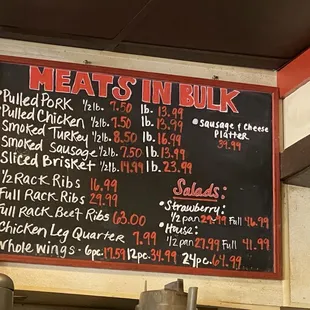 MEATS IN BULK
*Pulled Pork ½lb. 7.50 lb. 13.99
*Pulled Chicken ½lb. 7.50 lb. 13.99
*Smoked Turkey ½lb. 8.50 lb. 16.99
*Smoked Sausage ½lb. 7.50 lb. 13.99
*Sliced Brisket ½lb. 14.99 lb. 23.99
½ Rack Ribs 16.99
Full Rack Ribs 29.99
Full Rack Beef Ribs 63.00
Chicken Leg Quarter 7.99
Whole wings - 6pc. 17.59 12pc. 34.99 24pc. 64.99
*Sausage & Cheese
Platter
39.99
Salads:
*Strawberry:
½ pan 29.99 Full 46.99
*House:
½ pan 27.99 Full 41.99